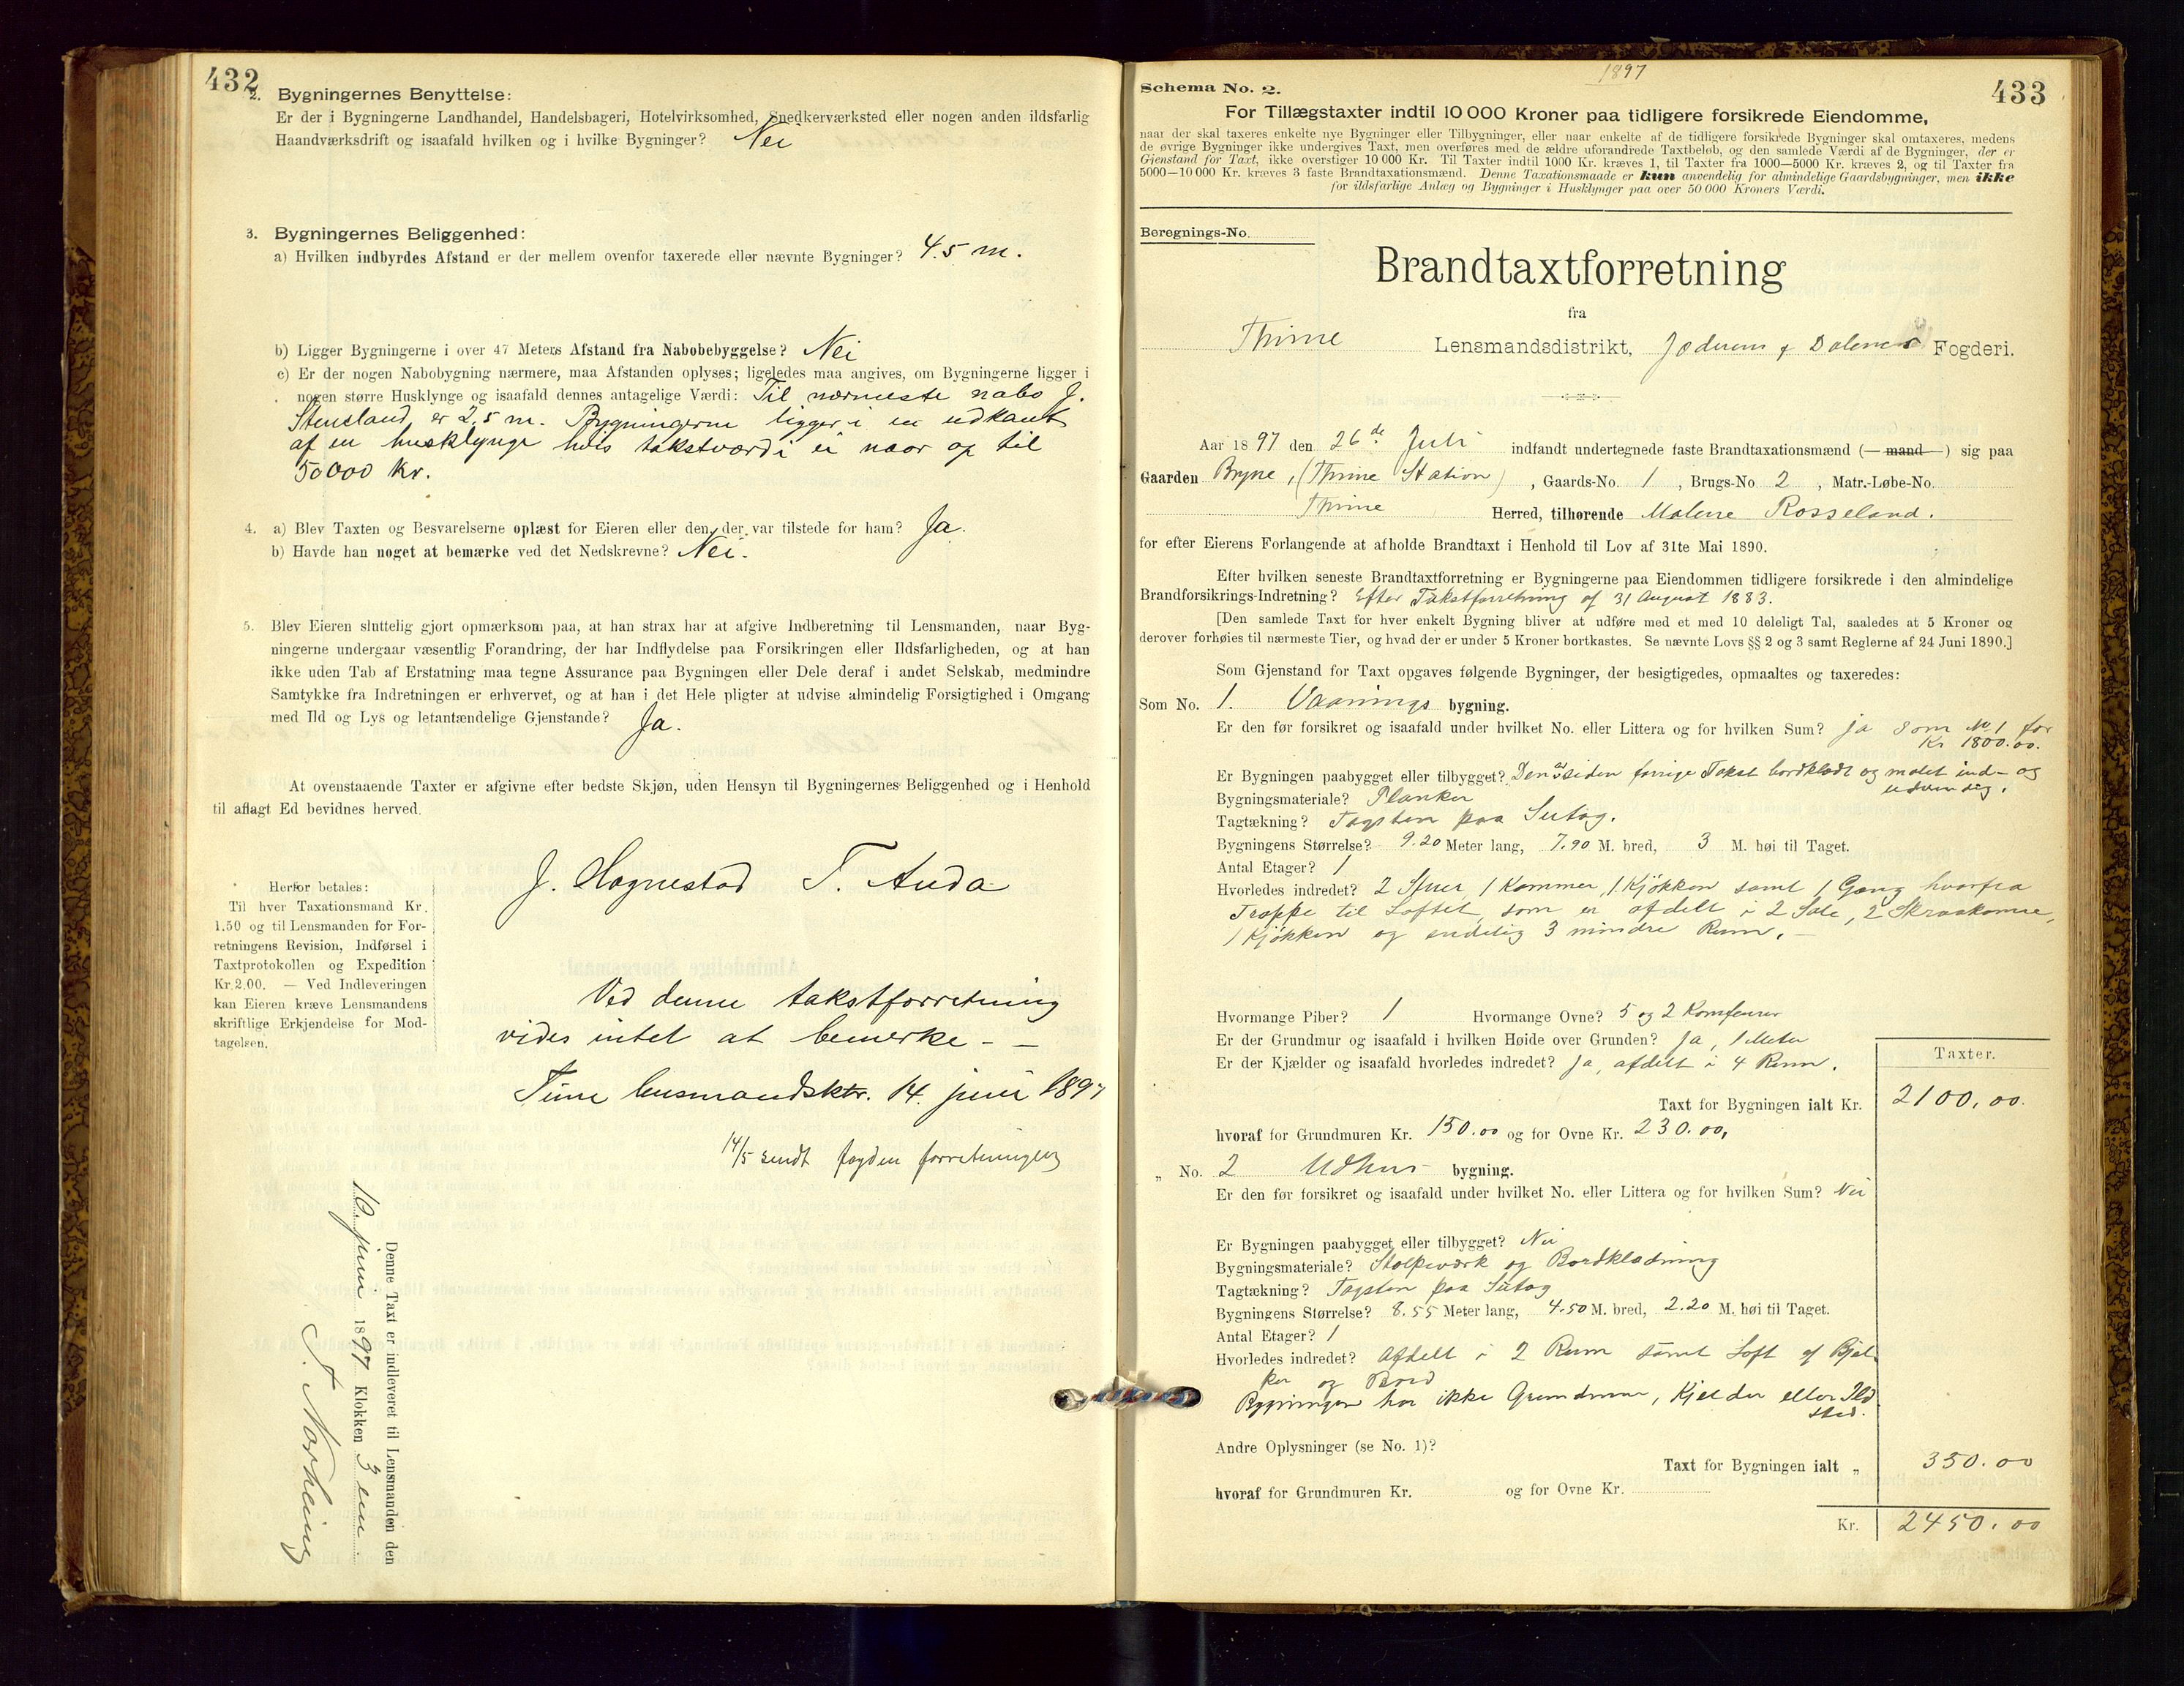 432
2. Bygningernes Benyttelse:
Er der i Bygningerne Landhandel, Handelsbageri, Hotelvirksomhed, Snedkerværksted eller nogen anden ildsfarlig
Haandværksdrift og isaafald hvilken og i hvilke Bygninger? Nei
3. Bygningernes Beliggenhed:
a) Hvilken indbyrdes Afstand er der mellem ovenfor taxerede eller nævnte Bygninger? 4.5 m.
b) Ligger Bygningerne i over 47 Meters Afstand fra Nabobebyggelse? Nei
c) Er der nogen Nabobygning nærmere, maa Afstanden oplyses; ligeledes maa angives, om Bygningerne ligger i
nogen større Husklynge og isaafald dennes antagelige Værdi: Til nærmeste nabo J.
Stensland er 2,5 m. Bygningerne ligger i en udkant
af en husklynge hvis takstværdi ei naar op til
50000 Kr.
4. a) Blev Taxten og Besvarelserne oplæst for Eieren eller den, der var tilstede for ham? Ja.
b) Havde han noget at bemærke ved det Nedskrevne? Nei.
5. Blev Eieren sluttelig gjort opmærksom paa, at han strax har at afgive Indberetning til Lensmanden, naar Byg-
ningerne undergaar væsentlig Forandring, der har Indflydelse paa Forsikringen eller Ildsfarligheden, og at han
ikke uden Tab af Erstatning maa tegne Assurance paa Bygningen eller Dele deraf i andet Selskab, medmindre
Samtykke fra Indretningen er erhvervet, og at han i det Hele pligter at udvise almindelig Forsigtighed i Omgang
med Ild og Lys og letantændelige Gjenstande? Ja.
At ovenstaaende Taxter er afgivne efter bedste Skjøn, uden Hensyn til Bygningernes Beliggenhed og i Henhold
til aflagt Ed bevidnes herved.
J. Hognestad T. Auda
Herfor betales:
Til hver Taxationsmand Kr.
1.50 og til Lensmanden for For-
retningens Revision, Indførsel i
Taxtprotokollen og Expedition
Kr. 2.00. — Ved Indleveringen
kan Eieren kræve Lensmandens
skriftlige Erkjendelse for Mod-
tagelsen.
Ved denne takstforretning
vides intet at bemerke - -
Time lensmandsktr. 14. juni 1897
14/5 sendt fogden forretningen
Denne Taxt er indleveret til Lensmanden den
10 juni 1897 Klokken 3 em
433
1897
Schema No. 2.
For Tillægstaxter indtil 10 000 Kroner paa tidligere forsikrede Eiendomme,
naar der skal taxeres enkelte nye Bygninger eller Tilbygninger, eller naar enkelte af de tidligere forsikrede Bygninger skal omtaxeres, medens
de øvrige Bygninger ikke undergives Taxt, men overføres med de ældre uforandrede Taxtbeløb, og den samlede Værdi af de Bygninger, der er
Gjenstand for Taxt, ikke overstiger 10 000 Kr. Til Taxter indtil 1000 Kr. kræves 1, til Taxter fra 1000—5000 Kr. kræves 2, og til Taxter fra
5000—10 000 Kr. kræves 3 faste Brandtaxationsmænd. Denne Taxationsmaade er kun anvendelig for almindelige Gaardsbygninger, men ikke
for ildsfarlige Anlæg og Bygninger i Husklynger paa over 50 000 Kroners Værdi.
Beregnings-No.
Brandtaxtforretning
fra
Thime Lensmandsdistrikt, Jæderens & Dalernes Fogderi.
Aar 1897 den 26de Juli indfandt undertegnede faste Brandtaxationsmænd (— mand —) sig paa
Gaarden Bryne, (Thime Station), Gaards-No. 1, Brugs-No 2, Matr.-Løbe-No.
Thime Herred, tilhørende Malene Rosseland.
for efter Eierens Forlangende at afholde Brandtaxt i Henhold til Lov af 31te Mai 1890.
Efter hvilken seneste Brandtaxtforretning er Bygningerne paa Eiendommen tidligere forsikrede i den almindelige
Brandforsikrings-Indretning? Efter Takstforretning af 31 August 1883.
[Den samlede Taxt for hver enkelt Bygning bliver at udføre med et med 10 deleligt Tal, saaledes at 5 Kroner og
derover forhøies til nærmeste Tier, og hvad der er under 5 Kroner bortkastes. Se nævnte Lovs §§ 2 og 3 samt Reglerne af 24 Juni 1890.]
Som Gjenstand for Taxt opgaves følgende Bygninger, der besigtigedes, opmaaltes og taxeredes:
Som No. 1. Vaanings bygning.
Er den før forsikret og isaafald under hvilket No. eller Littera og for hvilken Sum? ja som No 1 for
Kr 1800.00.
Er Bygningen paabygget eller tilbygget? Den er siden forrige Takst bordklædt og malet ind- og
udvendig.
Bygningsmateriale? Planker
Tagtækning? Tagsten paa Sutag.
Bygningens Størrelse? 9.20 Meter lang, 7.90 M. bred, 3 M. høi til Taget.
Antal Etager? 1
Hvorledes indredet? 2 Stuer, 1 Kammer, 1 Kjøkken samt 1 Gang hvorfra
Trappe til Loftet, som er afdelt i 2 Sale, 2 Skraakamre,
1 Kjøkken og endelig 3 mindre Rum. —
Hvormange Piber? 1 Hvormange Ovne? 5 og 2 Komfurer
Er der Grundmur og isaafald i hvilken Høide over Grunden? Ja, 1 Meter
Er der Kjælder og isaafald hvorledes indredet? Ja, afdelt i 4 Rum.
Taxter.
Taxt for Bygningen ialt Kr. 2100.00.
hvoraf for Grundmuren Kr. 150.00 og for Ovne Kr. 230.00,
„ No. 2 Udhus bygning.
Er den før forsikret og isaafald under hvilket No. eller Littera og for hvilken Sum? Nei
Er Bygningen paabygget eller tilbygget? Nei
Bygningsmateriale? Stolpeværk og Bordklædning
Tagtækning? Tagsten paa Sutag
Bygningens Størrelse? 8.55 Meter lang, 4.50 M. bred, 2.20 M. høi til Taget.
Antal Etager? 1
Hvorledes indredet? Afdelt i 2 Rum samt Loft af Bjæl-
ker og Bord
Bygningen har ikke Grundmur, Kjælder eller Ild-
sted.
Andre Oplysninger (se No. 1)?
Taxt for Bygningen ialt „ 350.00
hvoraf for Grundmuren Kr. og for Ovne Kr.
Kr. 2450.00